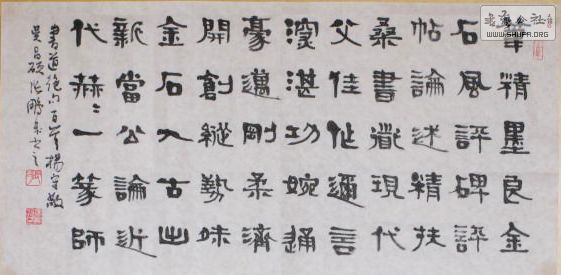 筆精墨良金
石風評碑評
帖論述精扶
桑書道現代
父佳作邇言
深湛功婉通
豪邁剛柔濟
開創縱勢味
金石入古出
新當公論近
代赫〻一篆師
書道絕句百首楊守敬
吳昌碩 鵬泉書之
書法公社
WWW.SHUFA.ORG